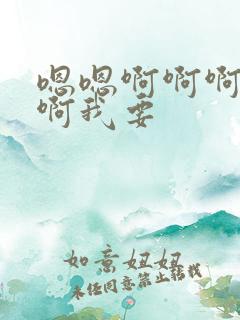 嗯嗯啊啊啊
啊我要
如意妞妞
未经同意禁止转载